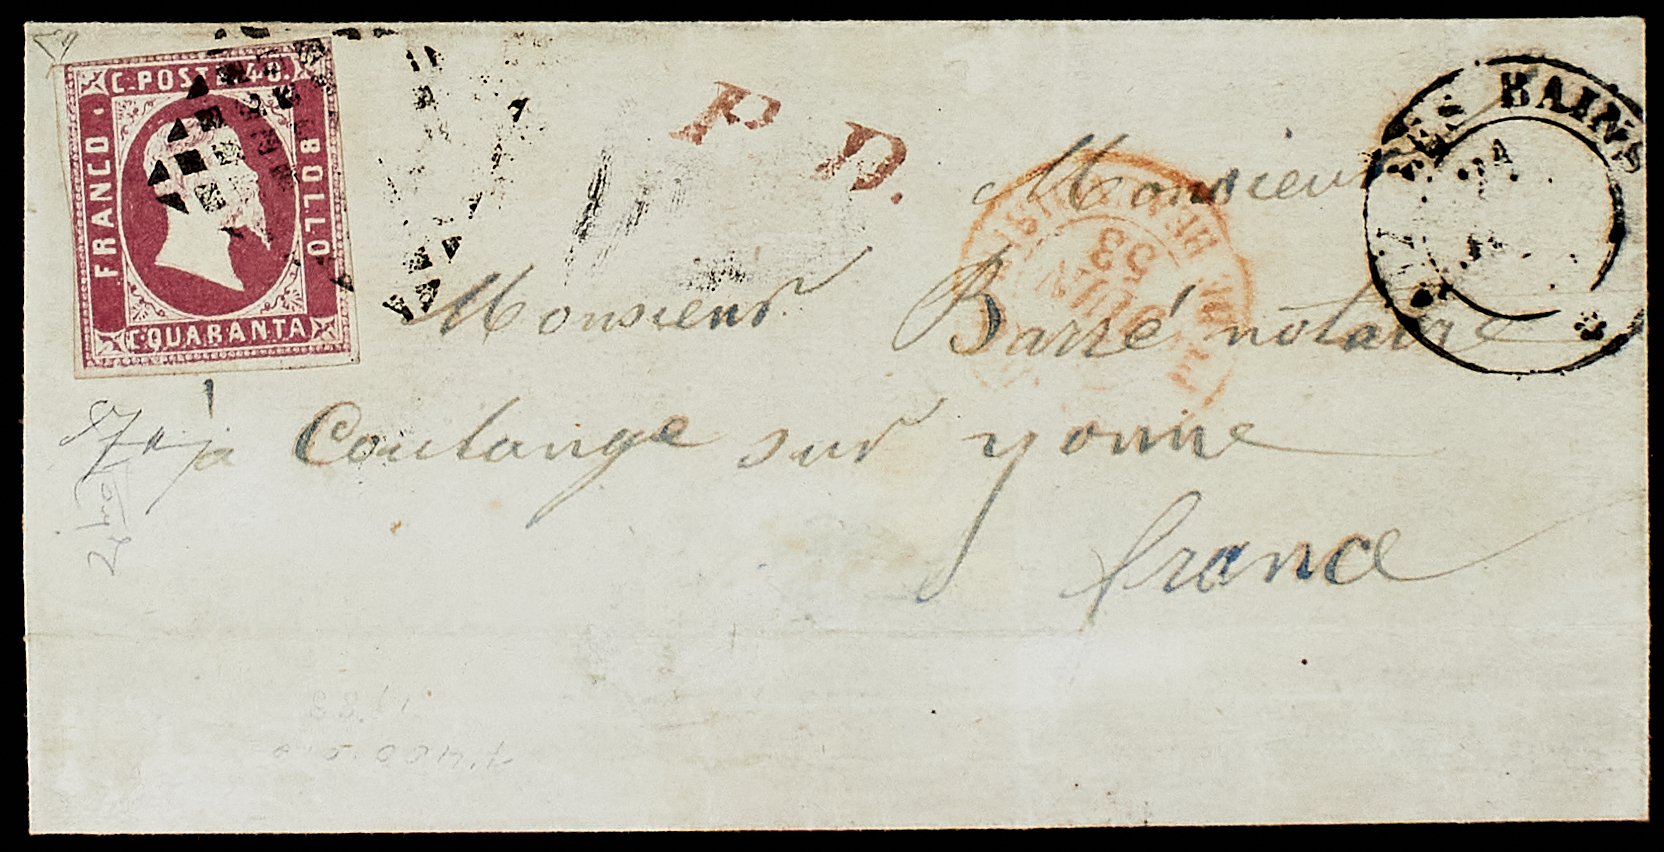 C. POSTE 40.
FRANCO
BOLLO
C. QUARANTA
P. D.
BAINS
JUIN
53
Monsieur
Monsieur Barré notaire
à Coulange sur yonne
france